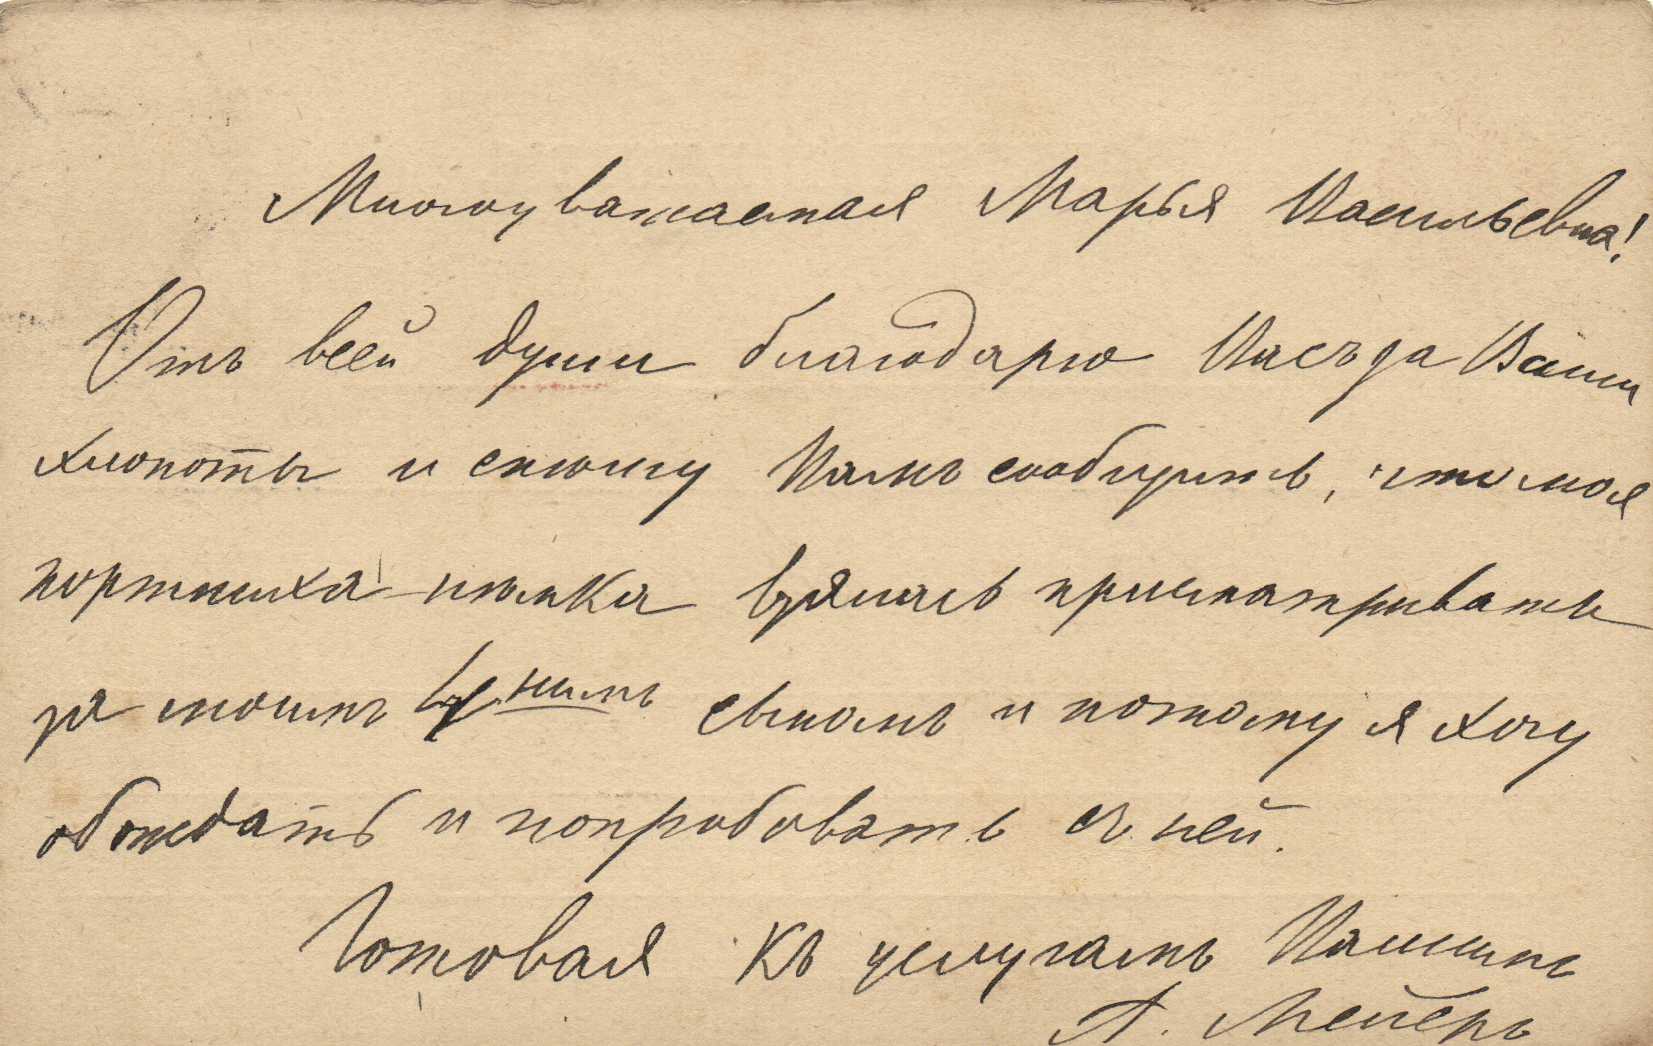 Многоуважаемая Марья Васильевна!
Отъ всей души благодарю Васъ за Ваши
хлопоты и спѣшу Вамъ сообщить, что моя
портниха нѣмка взялась присматривать
за моимъ 4х нимъ сыномъ и потому я хочу
обождать и попробовать съ ней.
Готовая къ услугамъ Вашимъ
А. Мейеръ